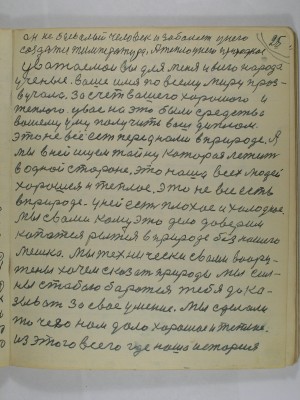 он не одевалый человек и забанет у него
создать температуру. А тепло у ней природное
уважаемой вы для меня и всего народа
ученые. Ваше имя по всему миру проз
вучала. За счет вашего хорошого и
теплого. у вас на это были средства
вашему уму получить ваш диплом.
Это не всё есть перед нами в природе. А
мы в ней ищем тайну которая лежит
в одной стороне. Это наша всех людей
хорошея и теплое. Это не все есть
в природе. у ней есть плохое и холодное.
Мы с вами кому это дело доверим
копатся рытся в природе без нашого
мешка. Мы технически с вами воору
жены хочем сказат природы мы сил
ны с тобою боротся тебя дока-
зыват за свое умение. Мы сделали
то чего нам дало хорошое и теплое.
из этого всего где наша история